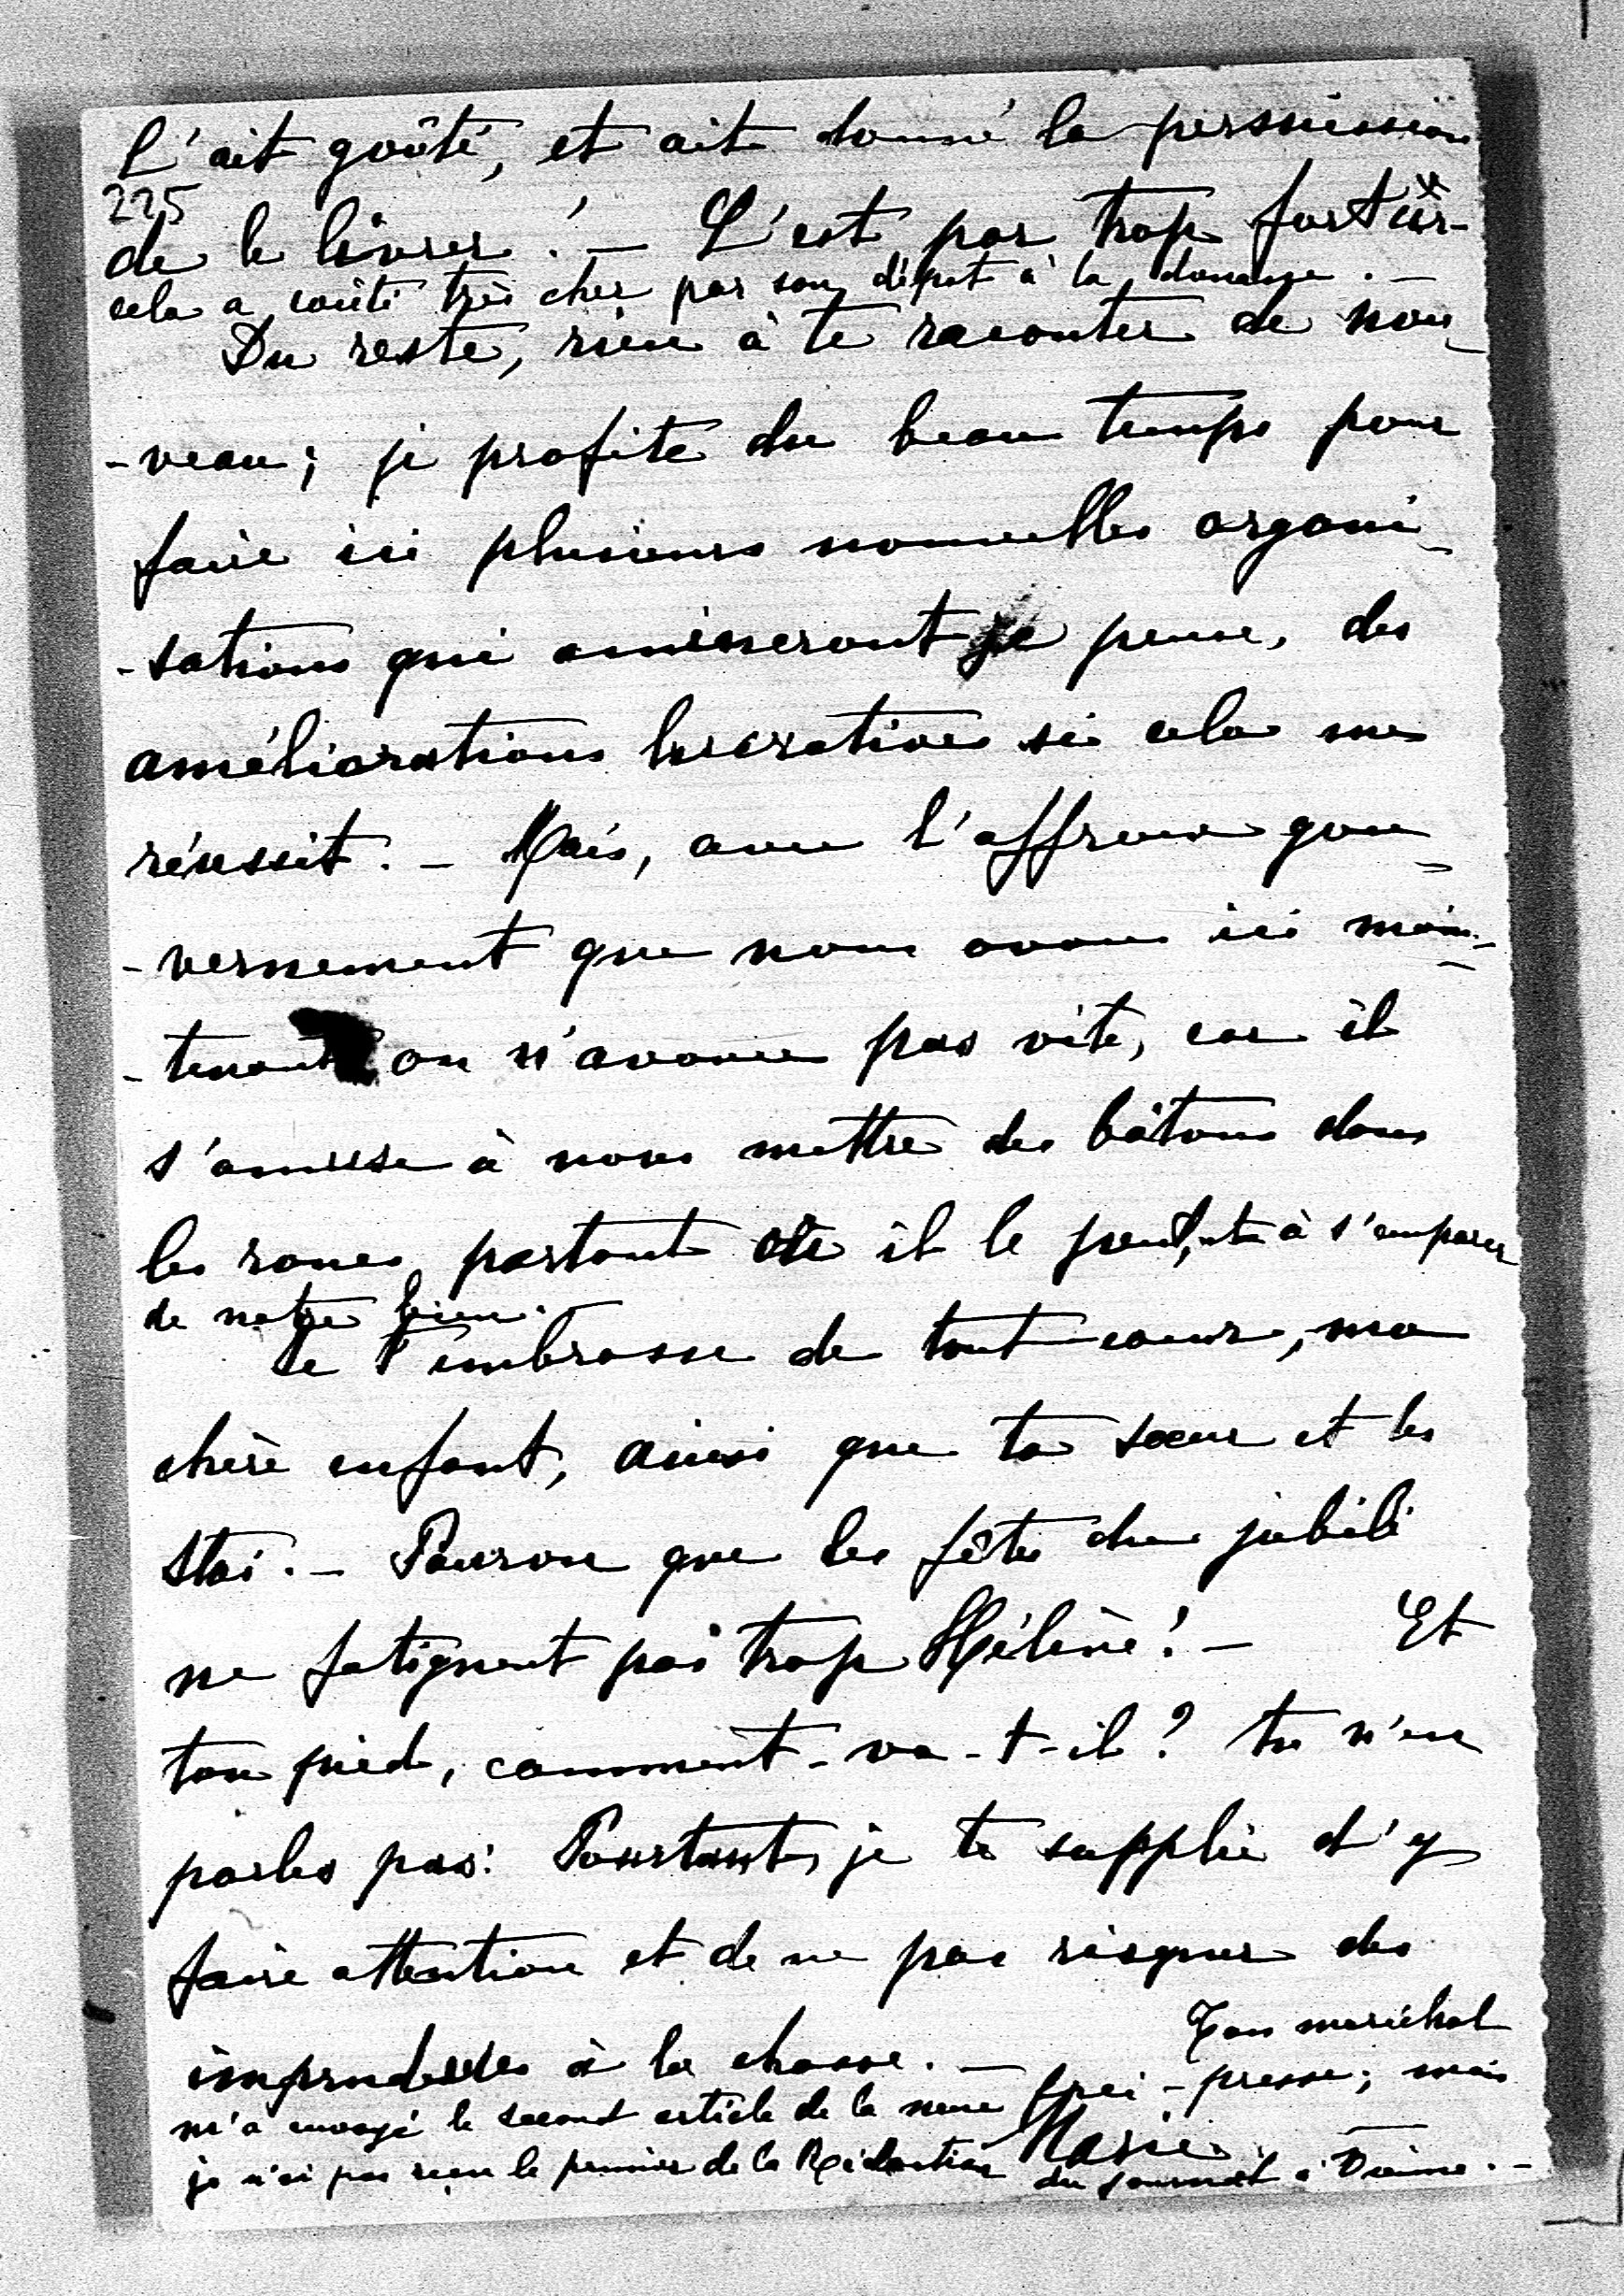 l'ait goûté, et ait donné la permission
225
de le livrer! — C'est par trop fort ❊ car
cela a coûté très cher par son dépot à la douane. —
Du reste, rien à te raconter de nou-
-veau; je profite du beau temps pour
faire ici plusieurs nouvelles organi-
-sations qui amèneront je pense, des
améliorations lucratives si cela me
réussit. — Mais, avec l'affreux gou-
-vernement que nous avons ici main-
-tenant on n'avance pas vite, car il
s'amuse à nous mettre des bâtons dans
les roues partout où il le peut, et à s'emparer
de notre bien.
Je t'embrasse de tout coeur, ma
chère enfant, ainsi que ta soeur et les
Stoï. — Pourvu que les fêtes du jubilé
ne fatiguent pas trop Hélène! — Et
ton pied, comment-va-t-il? tu n'en
parles pas! Pourtant, je te supplie d'y
faire attention et de ne pas risquer des
imprudences à la chasse. —
Ton maréchal
m'a envoyé le second article de la neue frei-presse; mais
je n'ai pas reçu le premier de la Rédaction du journal à Vienne. —
Marie